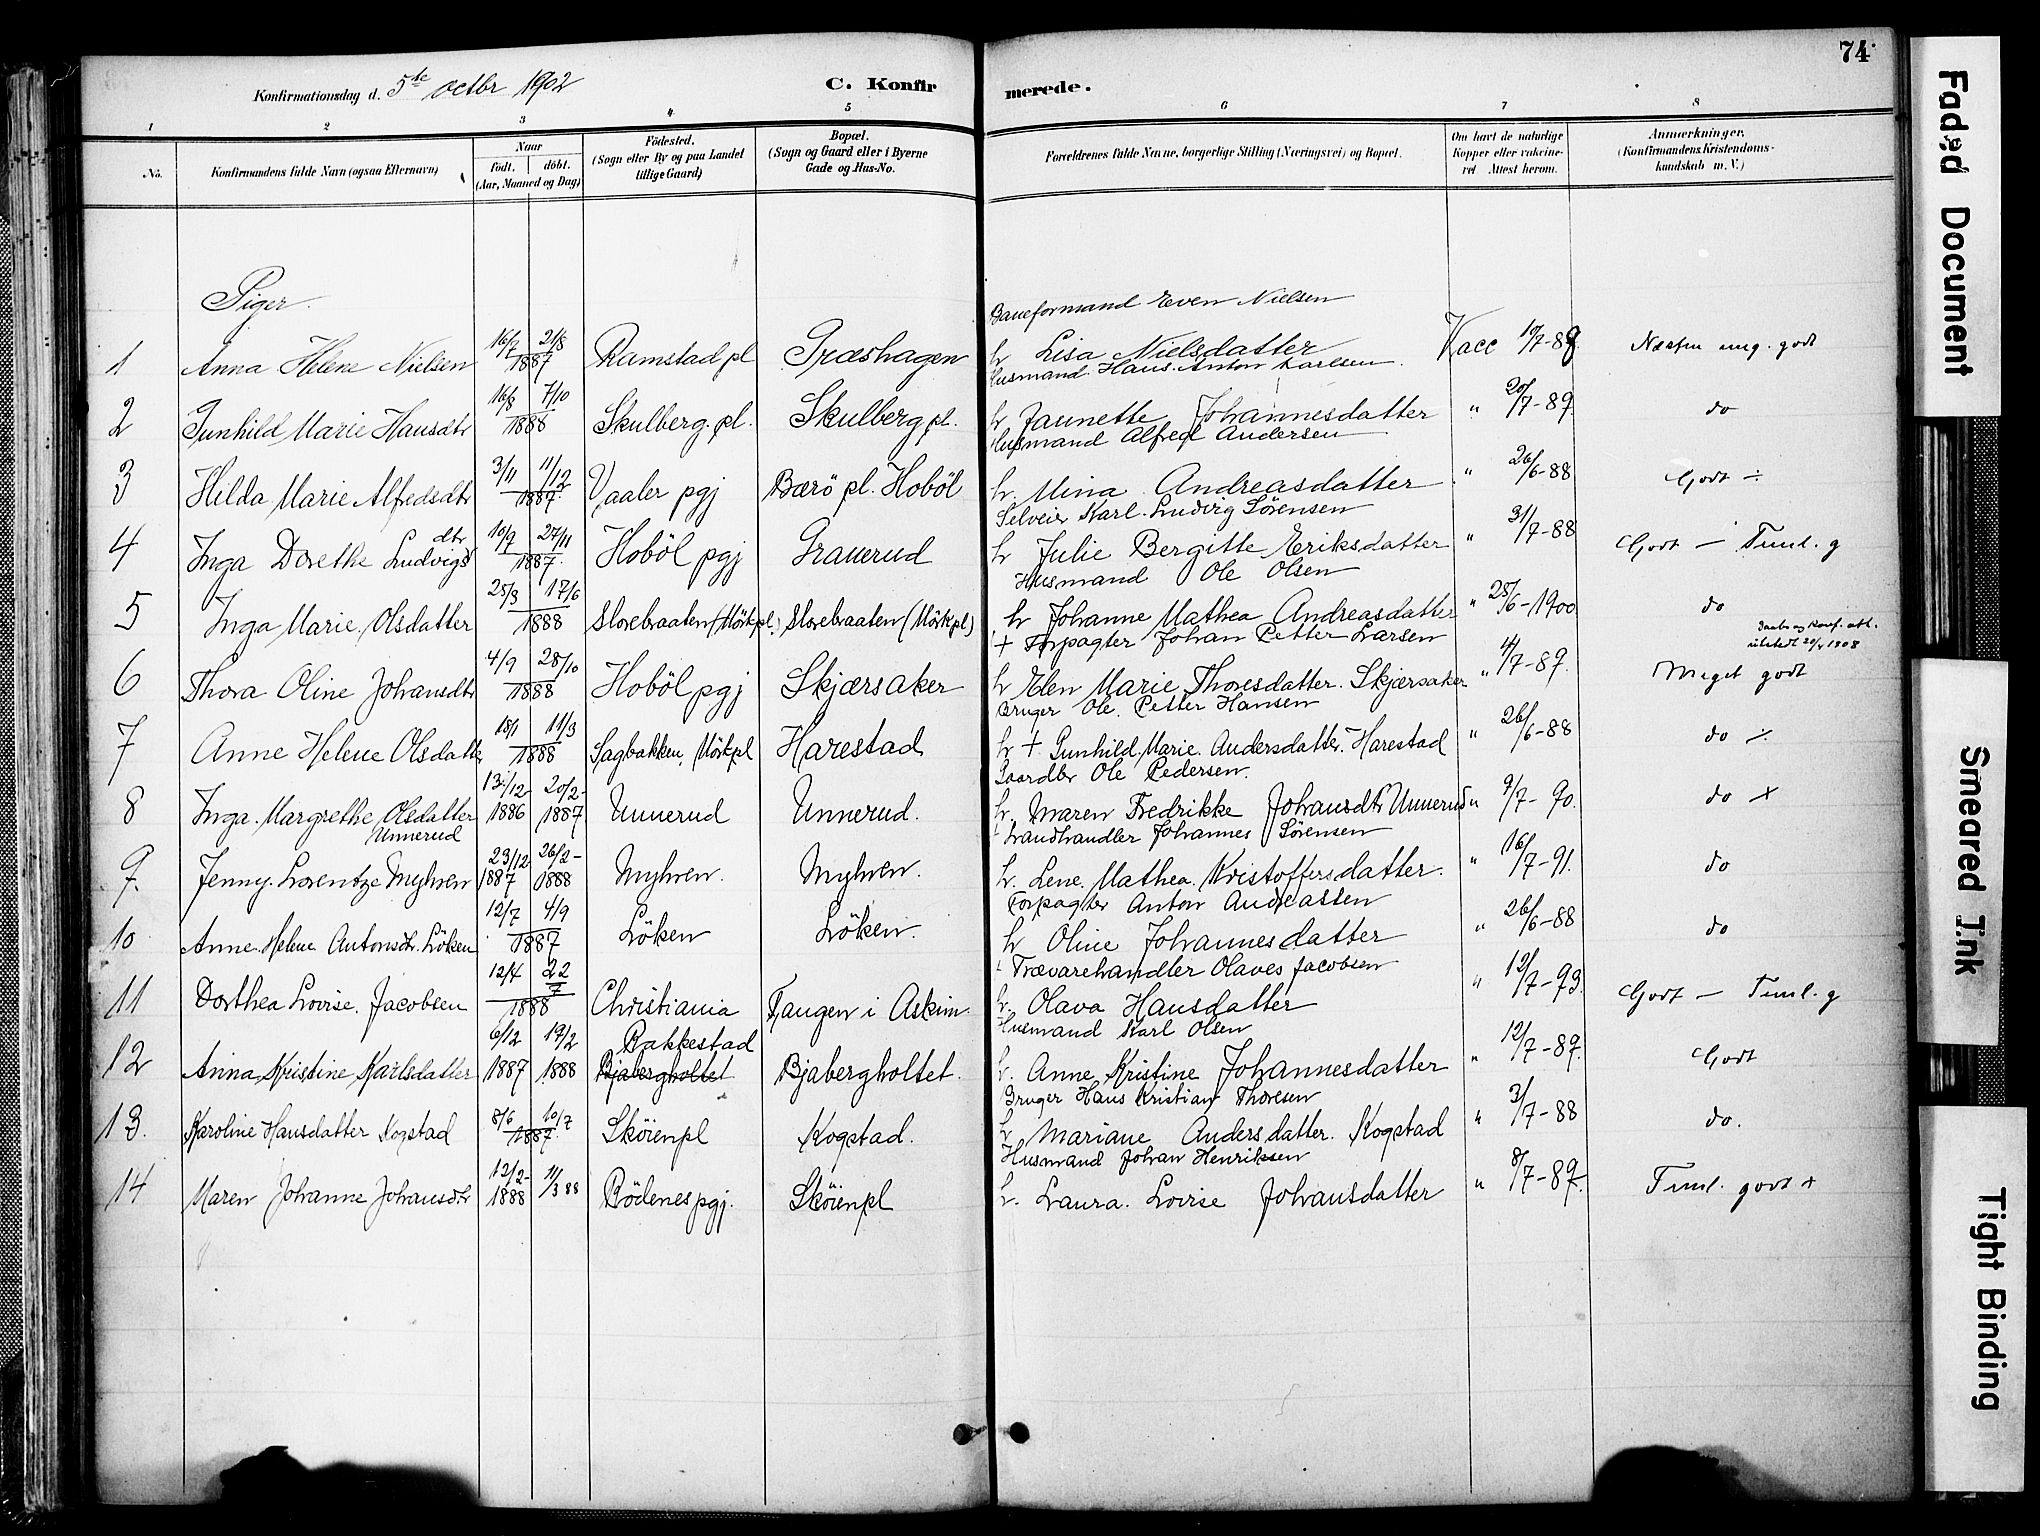 74
Konfirmationsdag d. 5te octbr 1902
C. Konfirmerede.
1 2 3 4 5 6 7 8
No.
Konfirmandens fulde Navn (ogsaa Efternavn)
Naar
født. døbt.
(Aar, Maaned og Dag)
Fødested.
(Sogn eller By og paa Landet
tillige Gaard)
Bopæl.
(Sogn og Gaard eller i Byerne
Gade og Hus-No.
Forældrenes fulde Navne, borgerlige Stilling (Næringsvei) og Bopæl.
Om havt de naturlige
Kopper eller vakcine-
ret Attest herom.
Anmærkninger.
(Konfirmandens Kristendoms-
kundskab m. V.)
Piger.
Baneformand Even Nielsen
1 Anna Helene Nielsen 16/7 2/8 1887 Ramstad pl Græshagen h Lisa Nielsdatter Vacc 10/7-89 Næsten mg. godt
Husmand Hans Anton Karlsen
2 Gunhild Marie Hansdtr 16/8 7/10 1888 Skulberg. pl. Skulberg pl. h Jaunette Johannesdatter " 20/7-89 do
Husmand Alfred Andersen
3 Hilda Marie Alfredsdtr 3/11 11/12 1887 Vaaler pgj Bærö pl. Hoböl h. Mina Andreasdatter " 26/6-88 Godt ÷
Selveier Karl Ludvig Sörensen
4 Inga Dorethe Ludvigsdtr 10/9 27/11 1887. Hoböl pgj Grauerud h Julie Bergitte Eriksdatter " 31/7-88 Godt — Teml. g
Husmand Ole Olsen
5 Inga Marie Olsdatter 25/3 17/6 1888 Storebraaten (Mörk pl.) Storebraaten (Mörk pl) h Johanne Mathea Andreasdatter " 25/6-1900 do
+ Forpagter Johan Petter Larsen
6 Thora Oline Johansdtr 4/9 28/10 1888 Hoböl pgj Skjærsaker h Elen Marie Thoresdatter. Skjærsaker " 4/7-89. Meget godt
Bruger Ole Petter Hansen
7 Anne Helene Olsdatter 18/1 11/3 1888 Sagbakken, Mörk pl Harestad h + Gunhild Marie Andersdatter. Harestad " 26/6-88 do
Gaardbr Ole Pedersen.
8 Inga Margrethe Olsdatter Unnerud 13/12 1886 20/2 1887 Unnerud Unnerud. h. Maren Fredrikke Johansdtr Unnerud " 9/7-90. do +
Landhandler Johannes Sörensen
9. Jenny Lorentze Myhren 23/12 1887 26/2 1888 Myhren. Myhren. h. Lene Mathea Kristoffersdatter. " 16/7-91. do
Forpagter Anton Andreassen
10 Anne Helene Antonsdtr. Löken 12/7 4/9 1887 Löken Löken. h Oline Johannesdatter " 26/6-88 do
Trævarehandler Olaves Jacobsen
11 Dorthea Lovise Jacobsen 12/4 22/7 1888 Christiania Tangen i Askim h. Olava Hansdatter " 12/7-93. Godt — Teml. g
Husmand Karl Olsen
12 Anna Kristine Karlsdatter 6/12 1887 19/2 1888 Rakkestad Bjabergholtet Bjabergholtet. h. Anne Kristine Johannesdatter " 12/7-89. Godt
Bruger Hans Kristian Thoresen
13. Karoline Hansdatter Kogstad 8/6 10/7 1887. Sköienpl Kogstad. h Mariane Andersdatter. Kogstad " 3/7-88 do.
Husmand Johan Henriksen
14 Maren Johanne Johansdtr 12/2 1888 11/3 88 Rödenes pgj. Sköienpl h. Laura Lovise Johansdatter " 8/7-89. Teml. godt +
Faded Document
Smeared Ink
Tight Binding